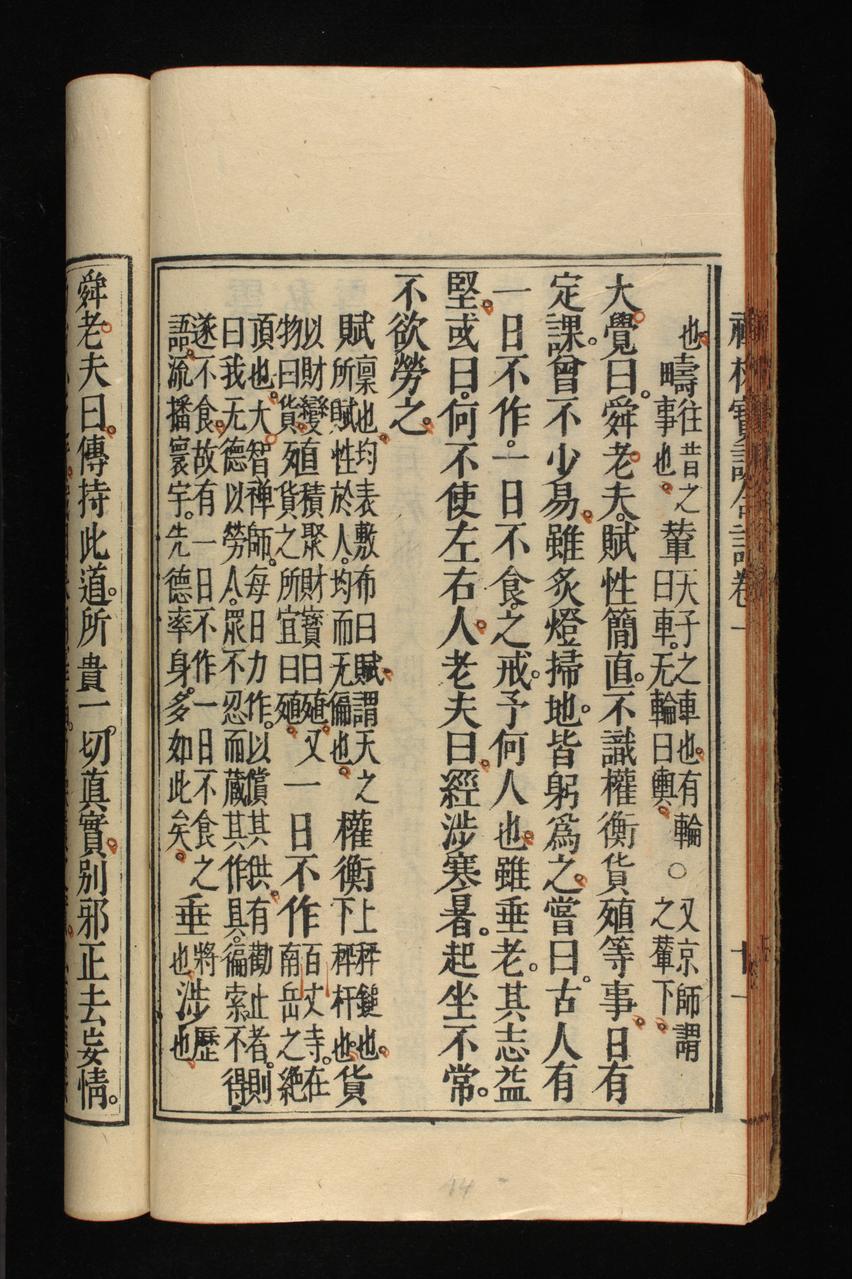 禪林寶訓合註卷一 十一
也。疇往昔之
畴事也。輦天子之車也。有輪
曰車。无輪曰輿。○又京師謂
之輦下。
大覺曰。舜老夫。賦性簡直。不識權衡貨殖等事。日有
定課。曾不少易。雖炙燈掃地。皆躬為之。嘗曰。古人有
一日不作。一日不食。之戒。予何人也。雖垂老。其志益
堅。或曰。何不使左右人。老夫曰。經涉寒暑。起坐不常。
不欲勞之。
賦稟也。均表敷布曰賦。謂天之
所賦性於人。均而无偏也。權衡上秤鎚也。
下秤杆也。貨
以財變直積聚財寶曰殖。又
物曰貨。殖貨之所宜曰殖。一日不作百丈寺。在
南岳之絕
頂也。大智禅師。每日力作。以償其供。有勸止者。則
曰我无德以勞人。眾不忍而藏其作具。徧索不得。
遂不食。故有一日不作一日不食之
語。流播寰宇。先德率身。多如此矣。垂將
也。涉歷
也。
舜老夫曰。傳持此道。所貴一。切真實。别邪正。去妄情。